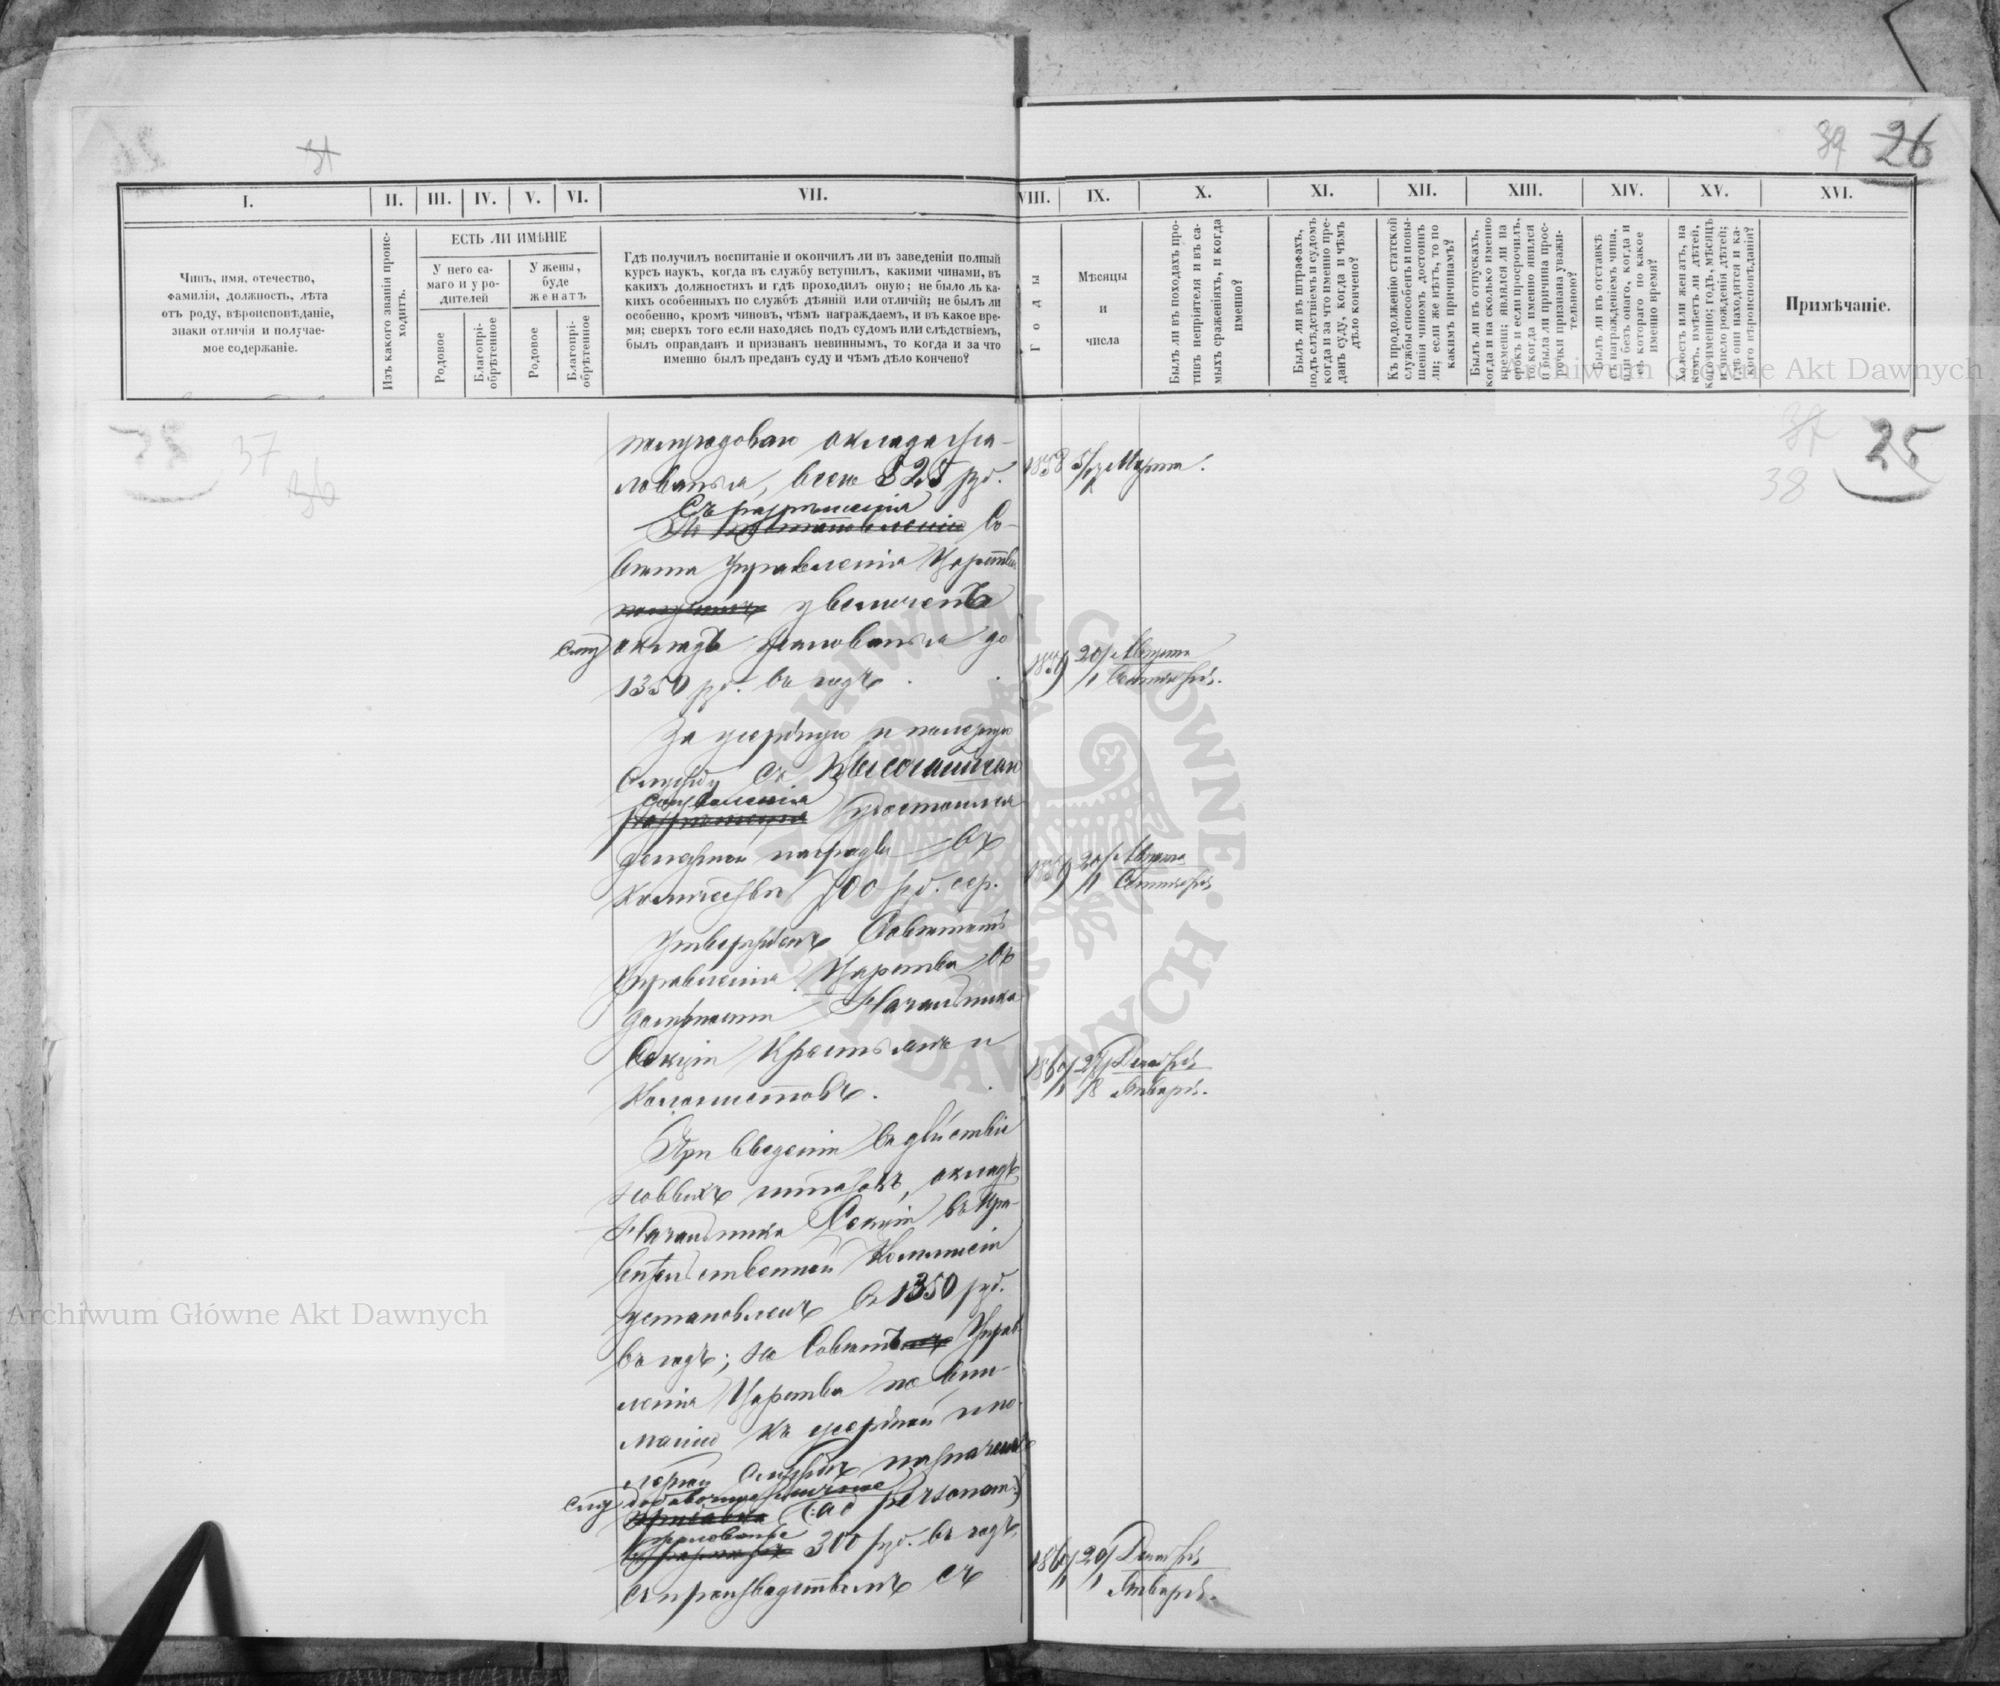 26
I.
II.
III.
IV.
V.
VI.
VII.
VIII.
IX.
X.
XI.
XII.
XIII.
XIV.
XV.
XVI.
Чинъ, имя, отечество,
фамилія, должность, лѣта
отъ роду, вѣроисповѣданіе,
знаки отличія и получае-
мое содержаніе.
Изъ какого званія проис-
ходитъ.
ЕСТЬ ЛИ ИМѢНІЕ
У него са-
маго и у ро-
дителей
У жены,
буде
женатъ
Родовое
Благопрі-
обрѣтенное
Родовое
Благопрі-
обрѣтенное
Гдѣ получилъ воспитаніе и окончилъ ли въ заведеніи полный
курсъ наукъ, когда въ службу вступилъ, какими чинами, въ
какихъ должностяхъ и гдѣ проходилъ оную; не было ль ка-
кихъ особенныхъ по службѣ дѣяній или отличій; не былъ ли
особенно, кромѣ чиновъ, чѣмъ награждаемъ, и въ какое вре-
мя; сверхъ того если находясь подъ судомъ или слѣдствіемъ,
былъ оправданъ и признанъ невиннымъ, то когда и за что
именно былъ преданъ суду и чѣмъ дѣло кончено?
Годы
Мѣсяцы
и
числа
Былъ ли въ походахъ про-
тивъ непріятеля и въ са-
мыхъ сраженіяхъ, и когда
именно?
Былъ ли въ штрафахъ,
подъ слѣдствіемъ и судомъ
когда и за что именно пре-
данъ суду, когда и чѣмъ
дѣло кончено?
Къ продолженію статской
службы способенъ и повы-
шенія чиномъ достоинъ
ли; если же нѣтъ, то по
какимъ причинамъ?
Былъ ли въ отпускахъ,
когда и на сколько именно
времени; являлся ли на
срокъ и если просрочилъ,
то когда именно явился
и была ли причина прос-
рочки признана уважи-
тельною?
Былъ ли въ отставкѣ
съ награжденіемъ чина,
или безъ онаго, когда и
съ котораго по какое
именно время?
Холостъ или женатъ, на
комъ, имѣетъ ли дѣтей,
кого именно; годъ, мѣсяцъ
и число рожденія дѣтей;
гдѣ они находятся и ка-
кого вѣроисповѣданія?
Примѣчаніе.
37
38
25
оклада жа-
лованья, всего 825 руб.
1858 5/17 Марта.
Съ разрѣшенія
Со-
вѣта Управленія Царства
увеличенъ
окладъ жалованья до
1350 руб. въ годъ.
1859 20/1 Августа
Сентября.
За усердную и полезную
службу съ Высочайшаго
соизволенія
удостоился
денежной награды въ
количествѣ 700 руб. сер.
1859 20/1 Августа
Сентября
Утвержденъ Совѣтомъ
Управленія Царства въ
должности Начальника
Секціи Крестьянъ и
Колонистовъ.
Декабря
Января.
При введеніи въ дѣйствіе
новыхъ штатовъ, окладъ
Начальника Секціи въ Пра-
вительственной Коммисіи
установленъ въ 1350 руб.
въ годъ; но Совѣтъ Управ-
ленія Царства по вни-
манію къ усердной и по-
лезной службѣ назначилъ
добавочное личное
(:ad personam:)
жалованье
300 руб. въ годъ,
съ производствомъ съ
Декабря
Января.
Archiwum Główne Akt Dawnych
Archiwum Główne Akt Dawnych
ARCHIWUM GŁÓWNE AKT DAWNYCH